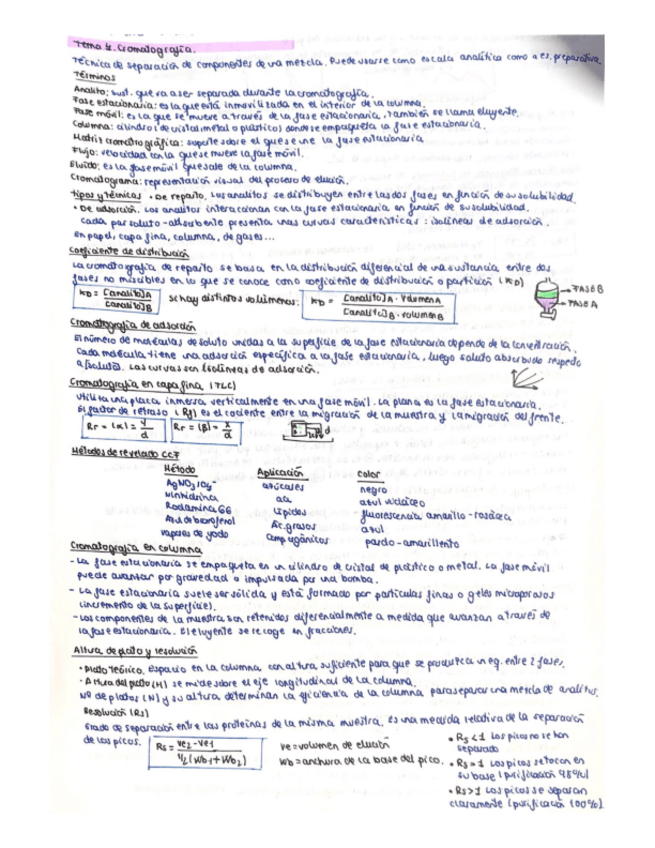 Tema 4. Cromatografía.
Técnica de separación de componentes de una mezcla. Puede usarse como escala analítica como a es. preparativa.
Términos
Analito: sust. que va a ser separada durante la cromatografía.
Fase estacionaria: es la que está inmovilizada en el interior de la columna.
Fase móvil: es la que se mueve a través de la fase estacionaria. También se llama eluyente.
Columna: cilindros de cristal metal o plásticos donde se empaqueta la fase estacionaria.
Matriz cromatográfica: soporte sobre el que se une la fase estacionaria
Flujo: velocidad con la que se mueve la fase móvil.
Eluido: es la fase móvil que sale de la columna.
Cromatograma: representación visual del proceso de elución.
Tipos y técnicas • De reparto. Los analitos se distribuyen entre las dos fases en función de su solubilidad.
• De adsorción. Los analitos interaccionan con la fase estacionaria en función de su solubilidad.
Cada par soluto-adsorbente presenta unas curvas características: isolíneas de adsorción.
En papel, capa fina, columna, de gases...
Coeficiente de distribución
La cromatografía de reparto se basa en la distribución diferencial de una sustancia entre dos
fases no miscibles en lo que se conoce como coeficiente de distribución o partición (KD)
KD = [analito]A / [analito]B si hay distintos volúmenes: KD = [analito]A · volumen A / [analito]B · volumen B
FASE B
FASE A
Cromatografía de adsorción
El número de moléculas de soluto unidas a la superficie de la fase estacionaria depende de la concentración.
Cada molécula tiene una adsorción específica a la fase estacionaria, luego soluto absorbido respecto
a [soluto]. Las curvas son isolíneas de adsorción.
Cromatografía en capa fina (TLC)
Utiliza una placa inmersa verticalmente en una fase móvil. La plana es la fase estacionaria.
El factor de retraso (Rf) es el cociente entre la migración de la muestra y la migración del frente.
Rf = (α) = y/d Rf = (β) = x/d
Métodos de revelado CCF
Método Aplicación Color
AgNO3 azúcares negro
Ninhidrina aa azul violáceo
Rodamina 6G Lípidos fluorescencia amarillo-rosácea
Azul de bromofenol Ác. grasos azul
vapores de yodo Comp orgánicos pardo-amarillento
Cromatografía en columna
- La fase estacionaria se empaqueta en un cilindro de cristal de plástico o metal. La fase móvil
puede avanzar por gravedad o impulsada por una bomba.
- La fase estacionaria suele ser sólida y está formado por partículas finas o geles microporosos
(incremento de la superficie).
- Los componentes de la muestra son retenidos diferencialmente a medida que avanzan a través de
la fase estacionaria. El eluyente se recoge en fracciones.
Altura de plato y resolución
• Plato teórico. Espacio en la columna con altura suficiente para que se produzca un eq. entre 2 fases.
• Altura del plato (H) se mide sobre el eje longitudinal de la columna.
Nº de platos (N) y su altura determinan la eficiencia de la columna para separar una mezcla de analitos.
Resolución (Rs)
Grado de separación entre las proteínas de la misma muestra. Es una medida relativa de la separación
de los picos.
Rs = Ve2 - Ve1 / ½(Wb1 + Wb2)
Ve = volumen de elución
Wb = anchura de la base del pico.
• Rs < 1 Los picos no se han
separado
• Rs = 1 Los picos se tocan en
su base (purificación 98%)
• Rs > 1 Los picos se separan
claramente (purificación 100%)